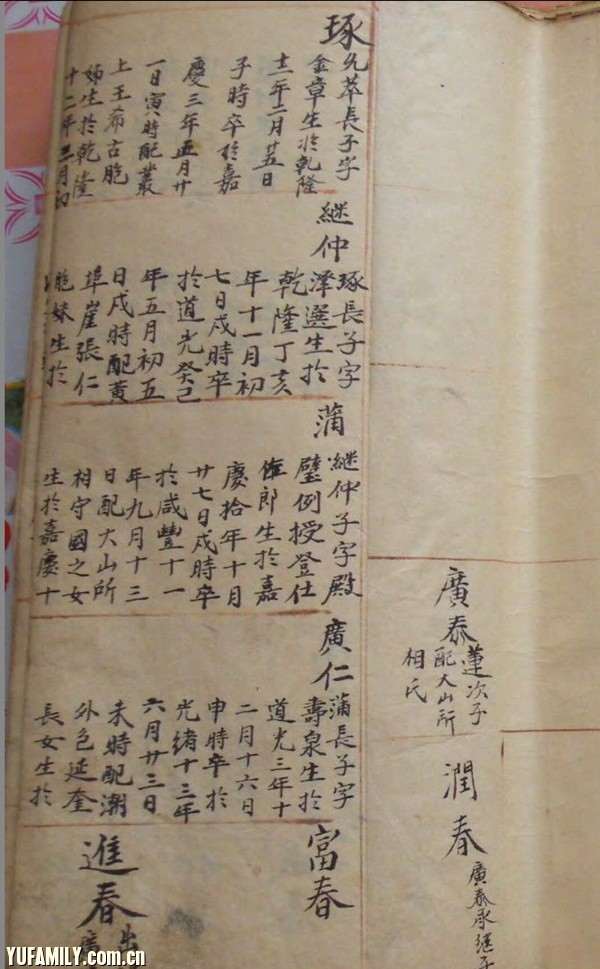 琢
允萃長子字
金章生於乾隆
十二年二月廿五日
子時卒於嘉
慶三年五月廿
一日寅時配叢
上王希古胞
姊生於乾隆
十二年三月初
繼仲
琢長子字
澤選生於
乾隆丁亥
年十一月初
七日戌時卒
於道光癸巳
年五月初五
日戌時配黃
埠崖張仁
胞妹生於
蒲
繼仲子字殿
璧例授登仕
郎生於嘉
慶拾年十月
廿七日戌時卒
於咸豐十一
年九月十三
日配大山所
相守國之女
生於嘉慶十
廣仁
蒲長子字
壽泉生於
道光三年十
二月十六日
申時卒於
光緒十三年
六月廿三日
未時配潮
外色延奎
長女生於
富春
進春
出
廣
廣泰
蓮次子
配大山所
相氏
潤春
廣泰承繼子
YUFAMILY.com.cn